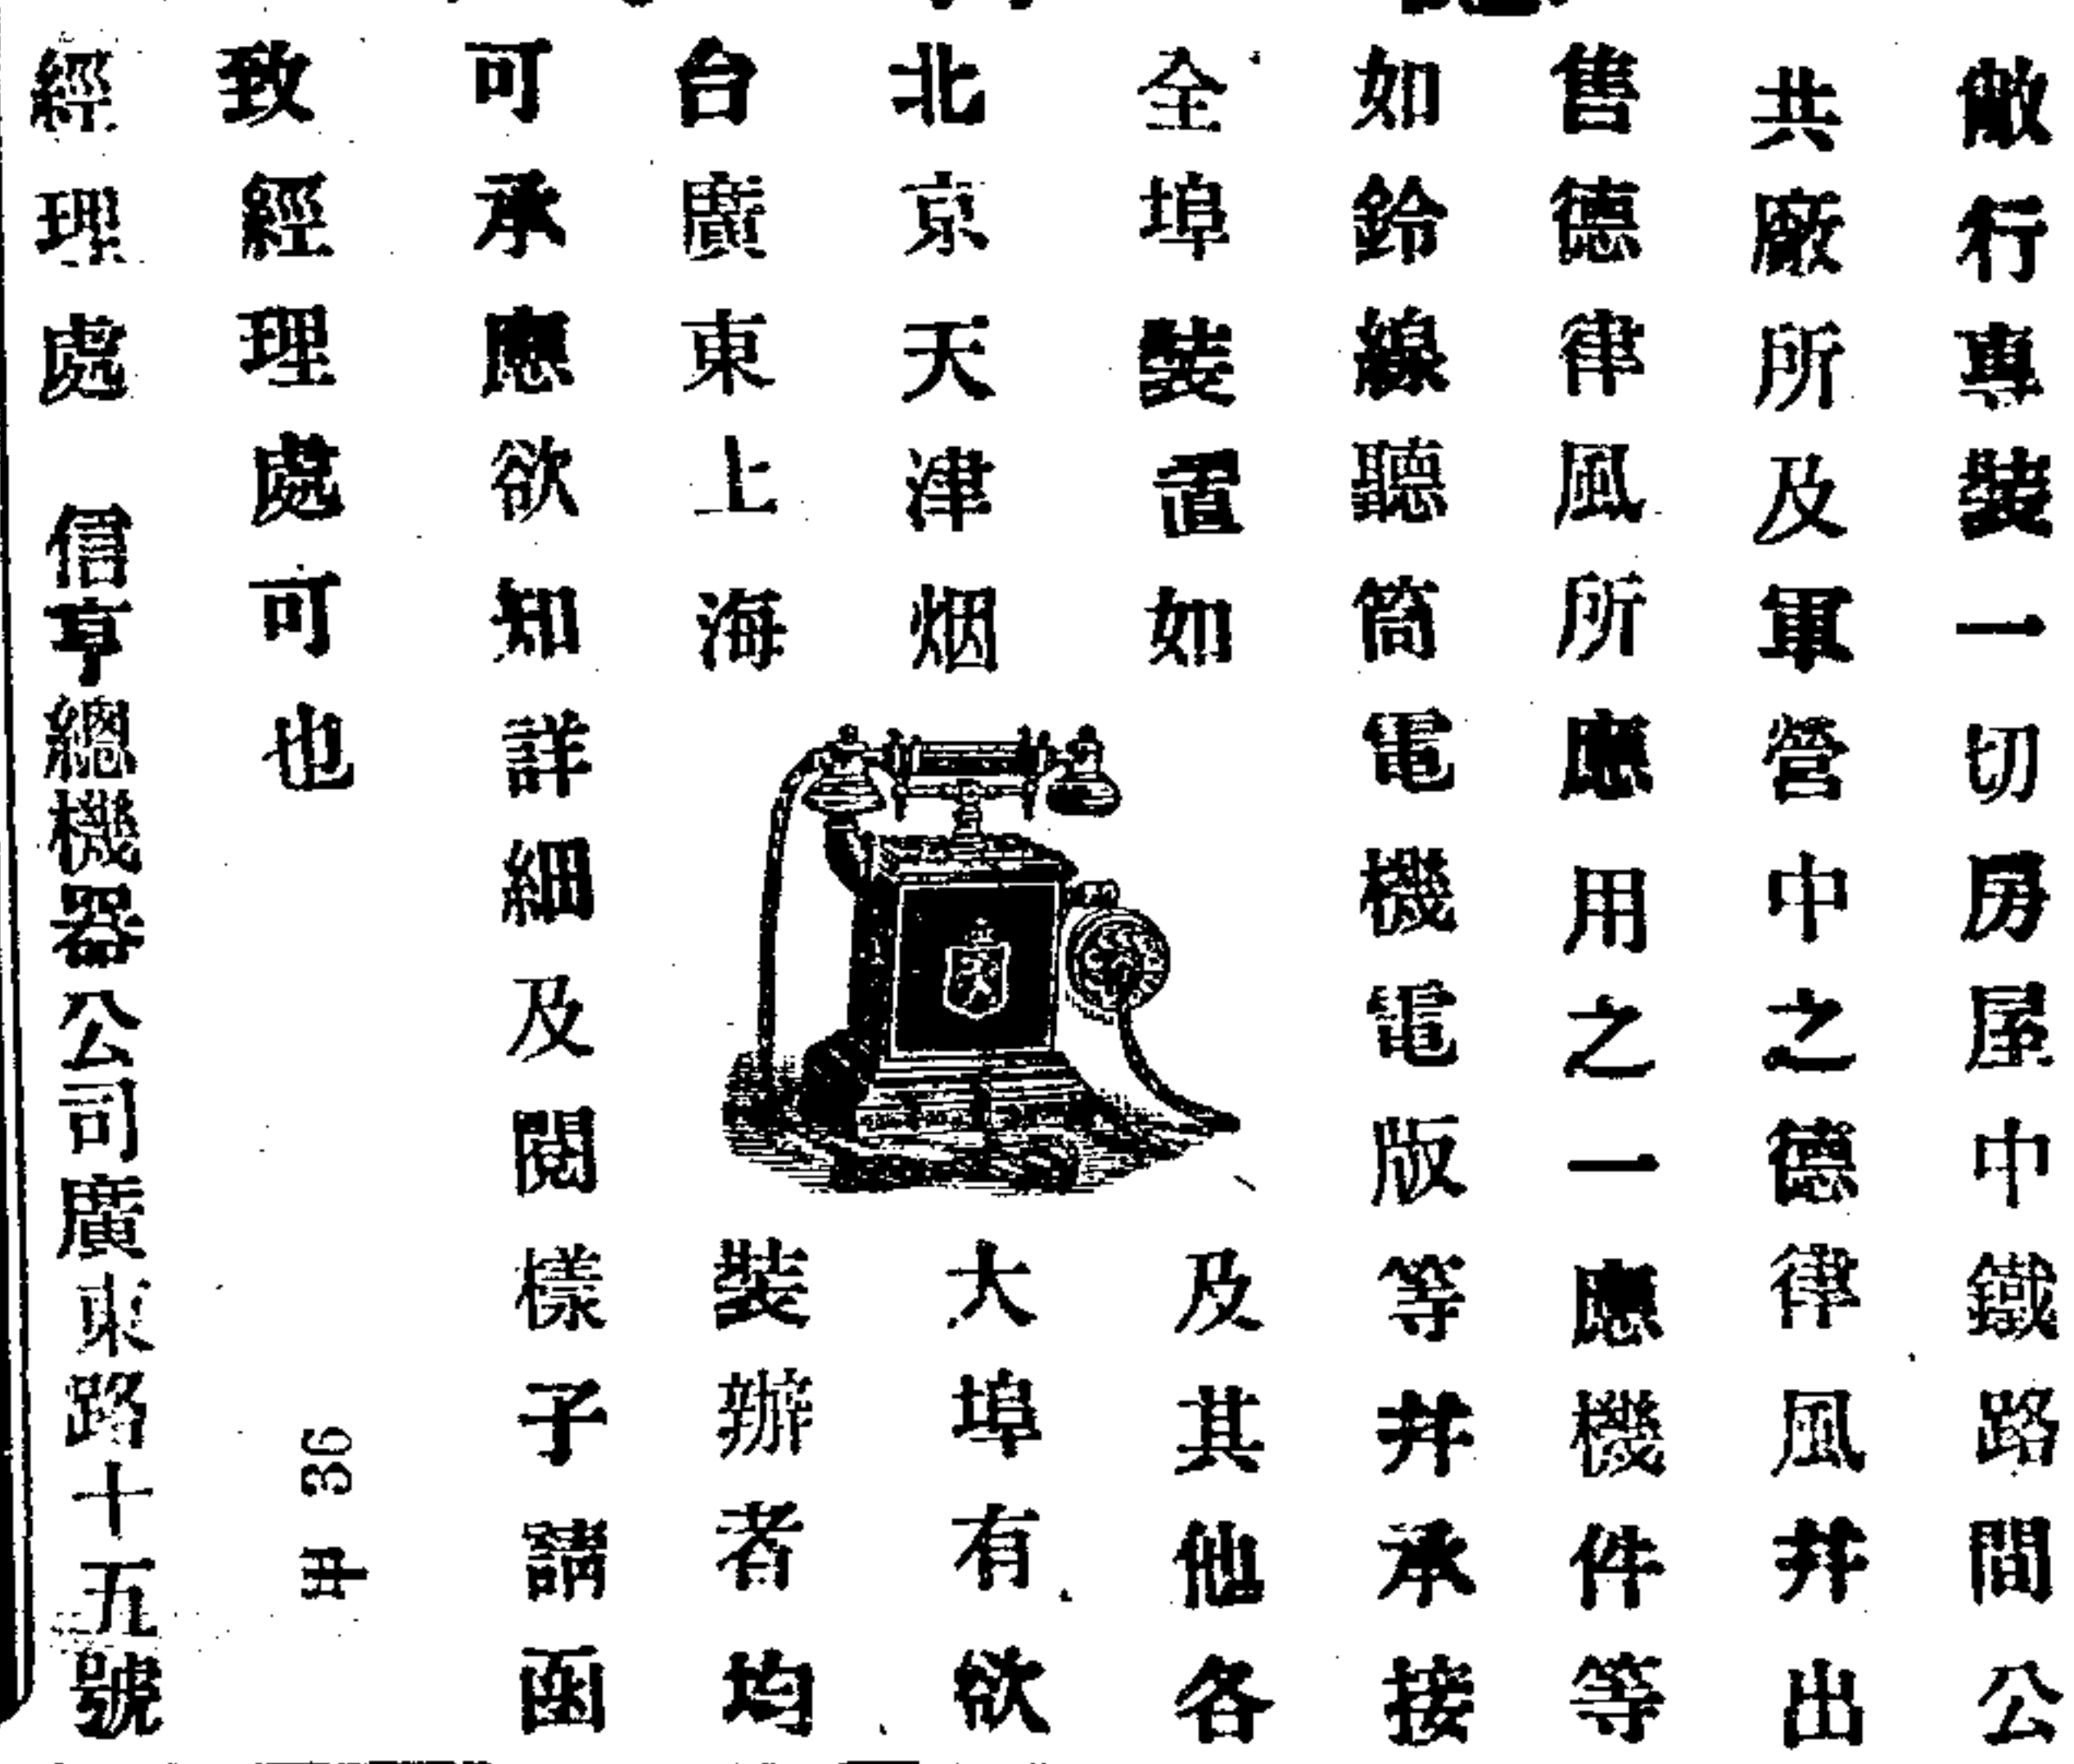 敝行專裝一切房屋中鐵路間公
共廠所及軍營中之德律風并出
售德律風所應用之一應機件等
如鈴線聽筒電機電版等并承接
全埠裝置如
北京天津烟
台廣東上海
及其他各
大埠有欲
裝辦者均
可承應欲知詳細及閱樣子請函
致經理處可也
36
經理處 信亨總機器公司廣東路十五號